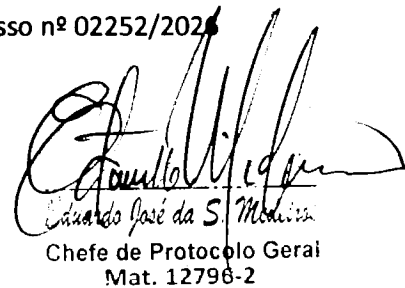 sso nº 02252/2026
Eduardo José da S. Medeiros
Chefe de Protocolo Geral
Mat. 12796-2